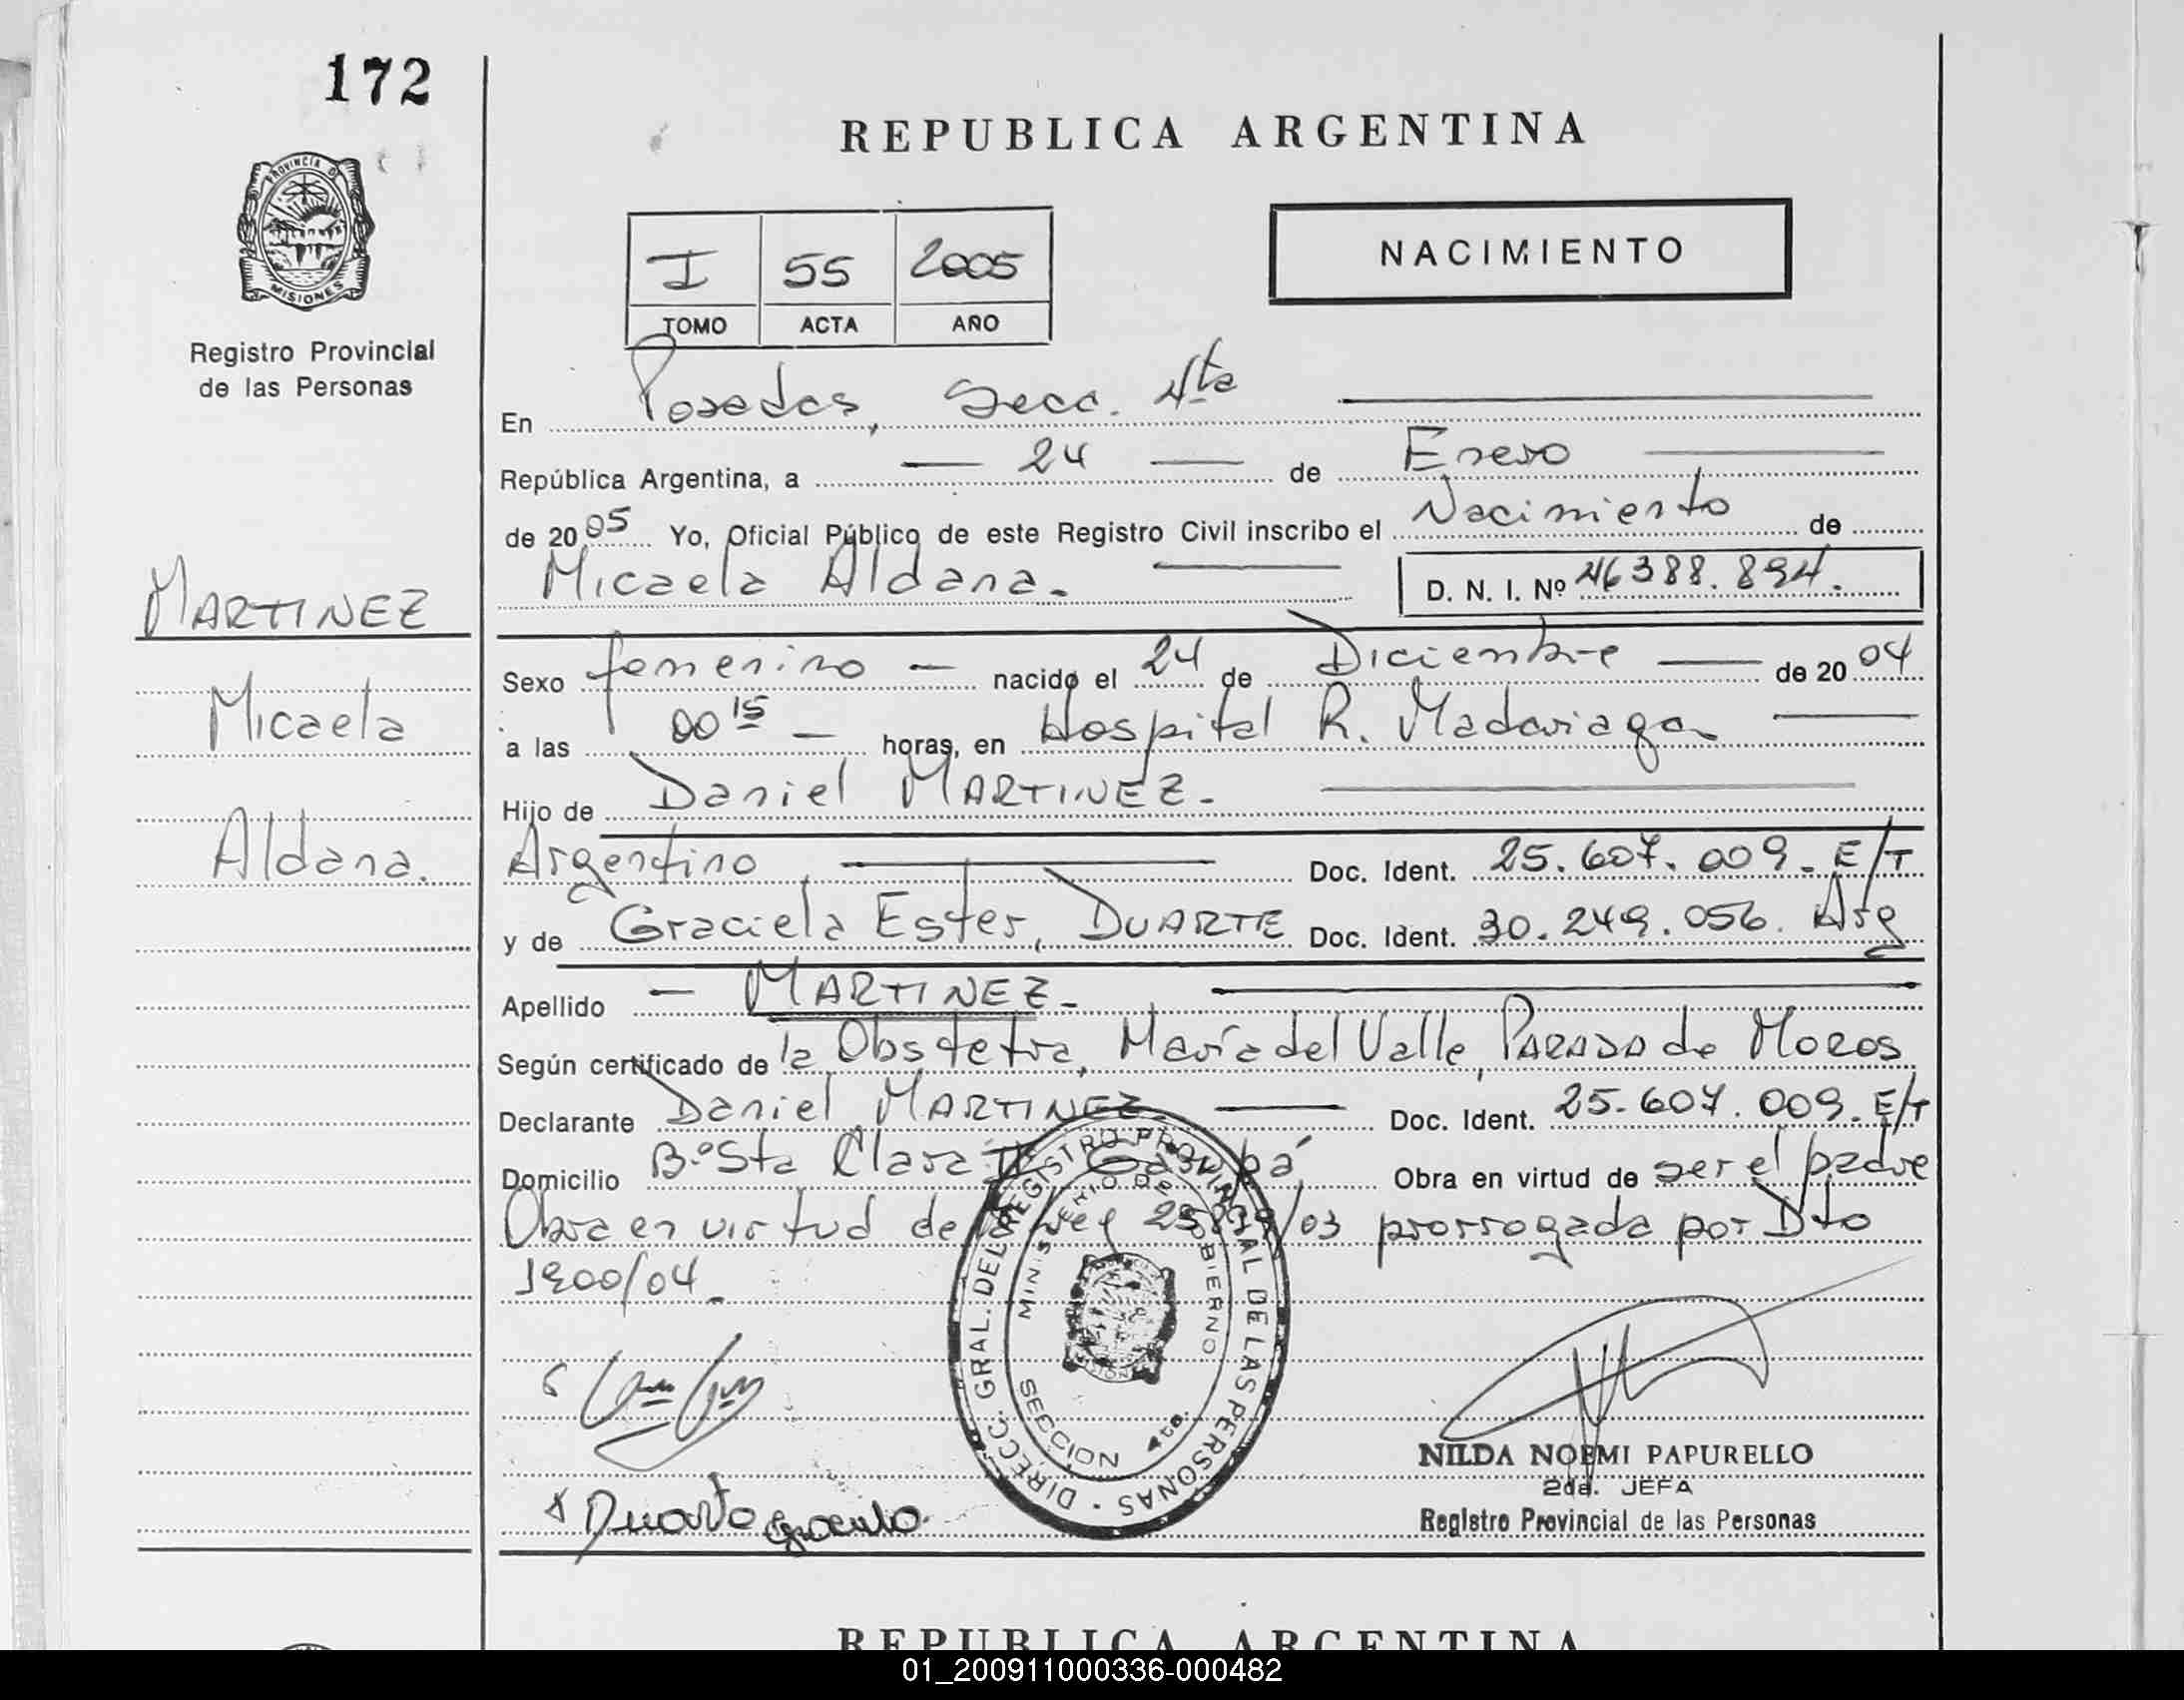 172
PROVINCIA DE
MISIONES
Registro Provincial
de las Personas
MARTINEZ
Micaela
Aldana.
REPUBLICA ARGENTINA
I 55 2005
TOMO ACTA AÑO
NACIMIENTO
En Posadas, Secc. 4ta
República Argentina, a 24 de Enero
de 2005 Yo, Oficial Público de este Registro Civil inscribo el Nacimiento de
Micaela Aldana. D. N. I. Nº 46388.894.
Sexo femenino nacido el 24 de Diciembre de 2004
a las 00 15 horas, en Hospital R. Madariaga
Hijo de Daniel MARTINEZ.
Argentino Doc. Ident. 25.607.009. E/T
y de Graciela Ester, DUARTE Doc. Ident. 30.249.056. Arg
Apellido MARTINEZ
Según certificado de la Obstetra, María del Valle, PARADA de Moros
Declarante Daniel MARTINEZ. Doc. Ident. 25.607.009. E/T
Domicilio B.º Sta Clara II Garupá Obra en virtud de ser el padre
Obra en virtud de la Ley /03 prorrogada por Dto
1900/04
DIRECC. GRAL. DEL REGISTRO PROVINCIAL DE LAS PERSONAS
MINISTERIO DE GOBIERNO
SECCION 4ta.
Duarte Graciela
NILDA NOEMI PAPURELLO
2da. JEFA
Registro Provincial de las Personas
REPUBLICA ARGENTINA
01_200911000336-000482